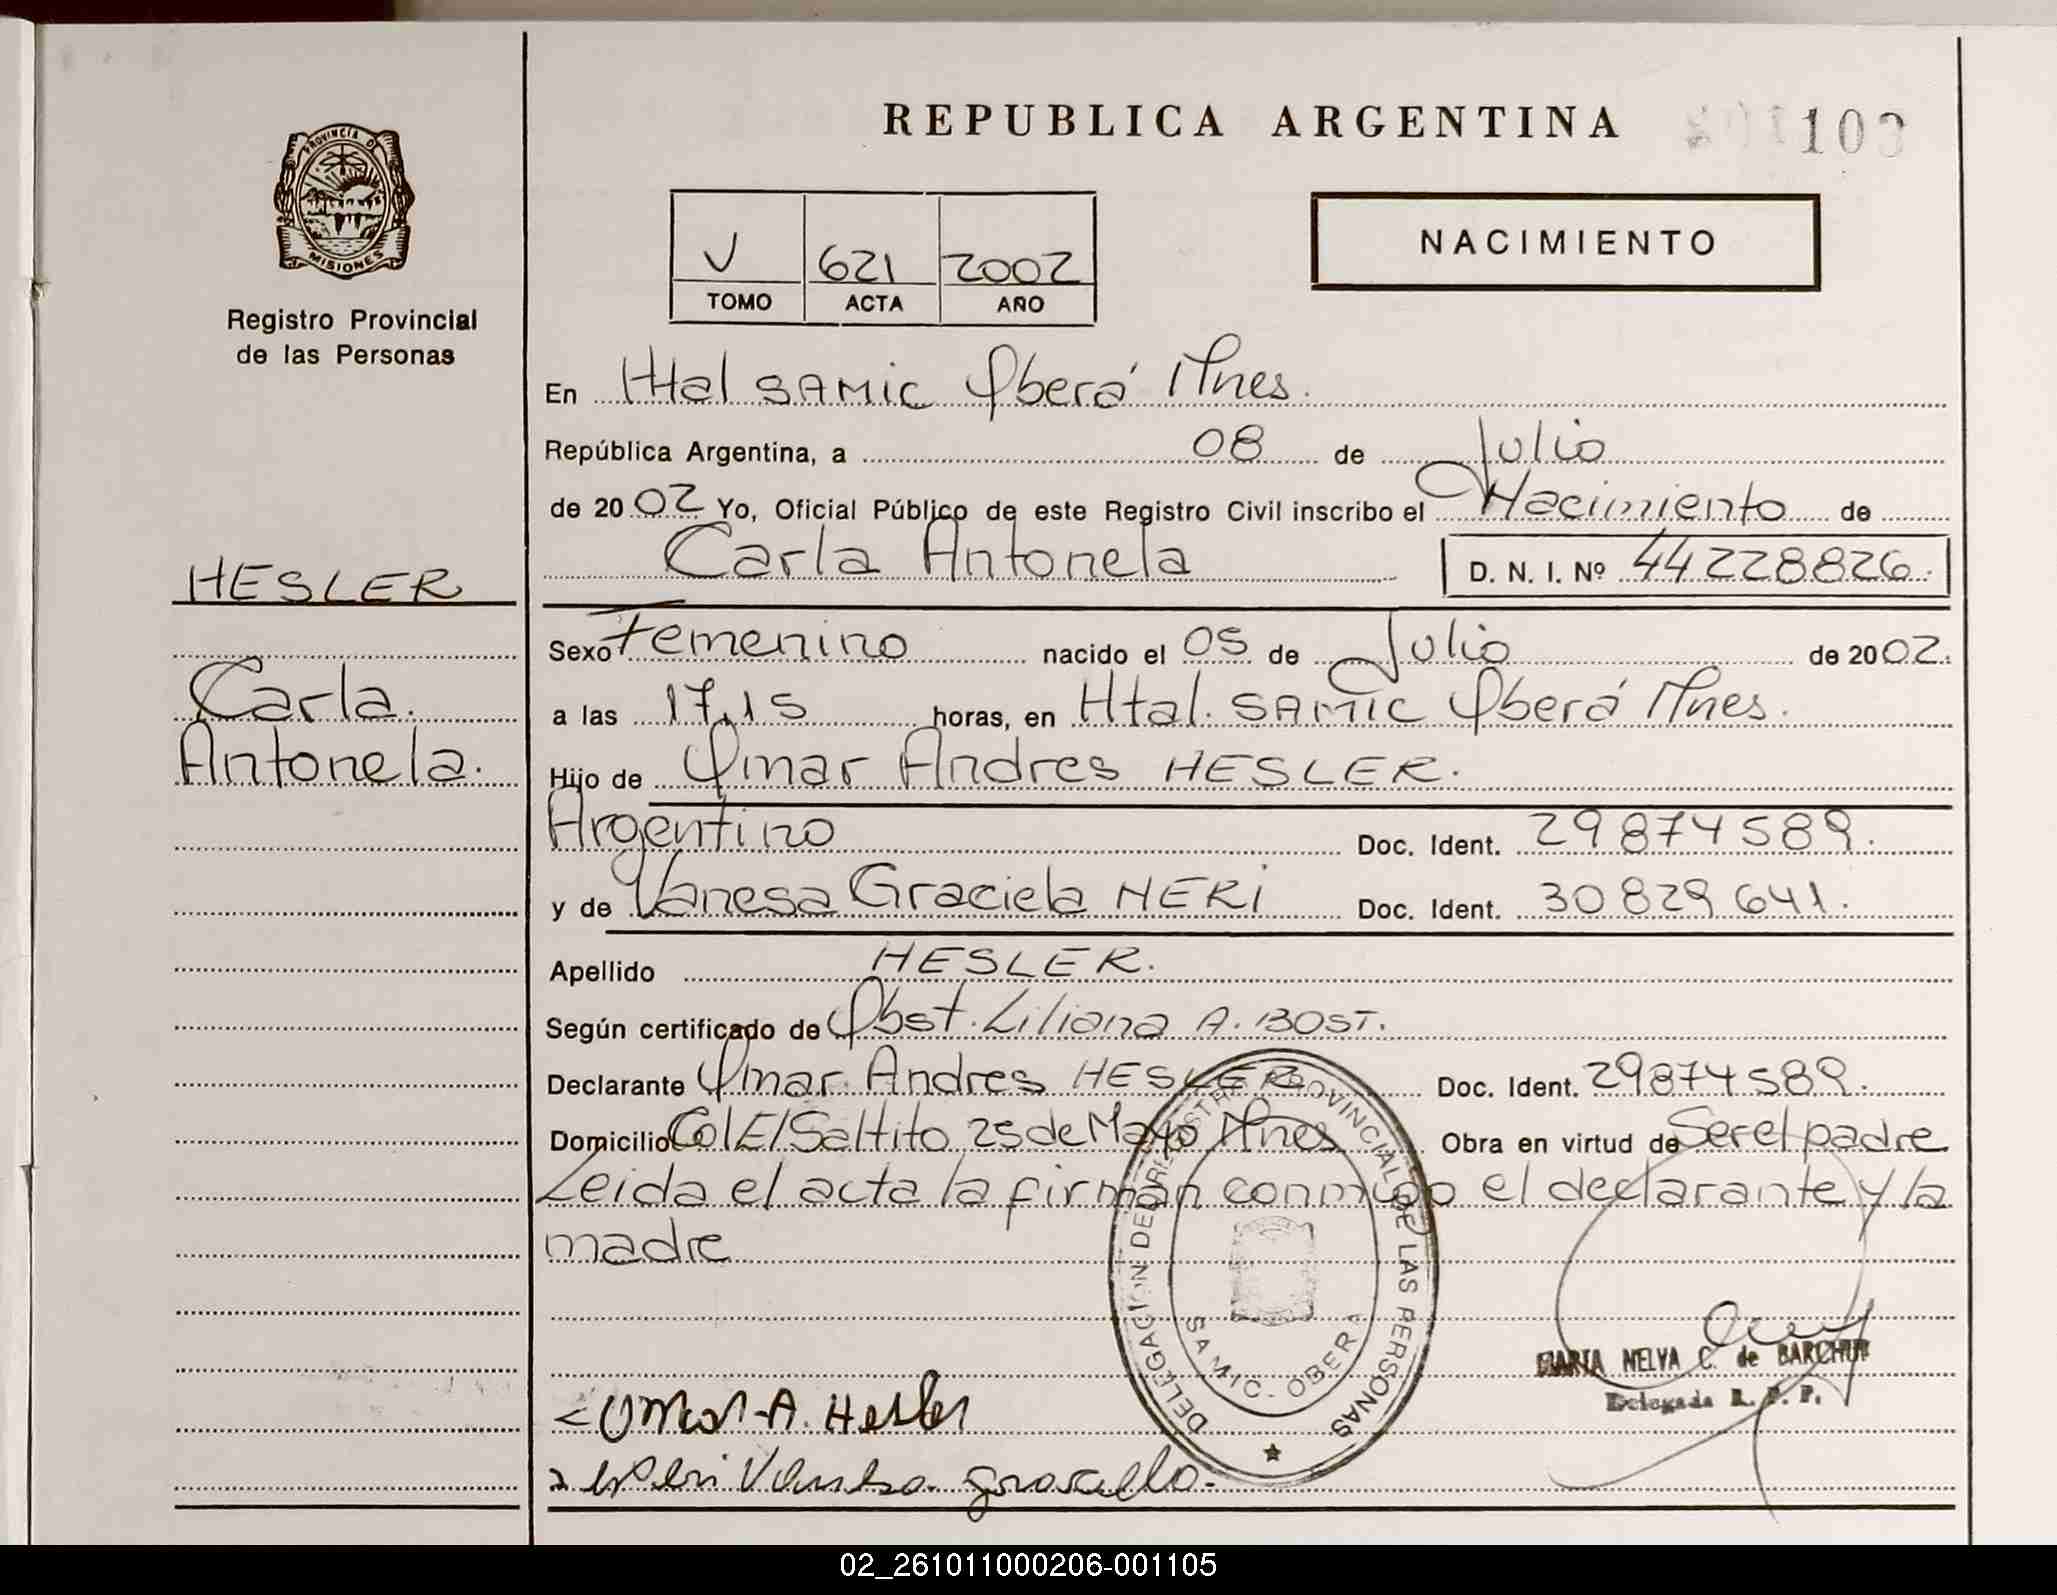 REPUBLICA ARGENTINA
103
PROVINCIA DE
MISIONES
Registro Provincial
de las Personas
V 621 2002
TOMO ACTA AÑO
NACIMIENTO
En Htal SAMIC Oberá Mnes.
República Argentina, a 08 de Julio
de 2002 Yo, Oficial Público de este Registro Civil inscribo el Nacimiento de
Carla Antonela D. N. I. Nº 44228826.
HESLER
Carla.
Antonela.
Sexo Femenino nacido el 05 de Julio de 2002.
a las 17,15 horas, en Htal. SAMIC Oberá Mnes.
Hijo de Omar Andres HESLER.
Argentino Doc. Ident. 29874589.
y de Vanesa Graciela NERI Doc. Ident. 30829641.
Apellido HESLER.
Según certificado de Obst. Liliana A. BOST.
Declarante Omar Andres HESLER Doc. Ident. 29874589.
Domicilio Col El Saltito 25 de Mayo Mnes Obra en virtud de Ser el padre
Leida el acta la firman conmigo el declarante y la
madre
DELEGACION DEL REGISTRO PROVINCIAL DE LAS PERSONAS
SAMIC - OBERA
MARIA NELVA C. de BARCHUK
Delegada R. P. P.
Omar A. Hesler
Neri Vanesa Graciela.
02_261011000206-001105